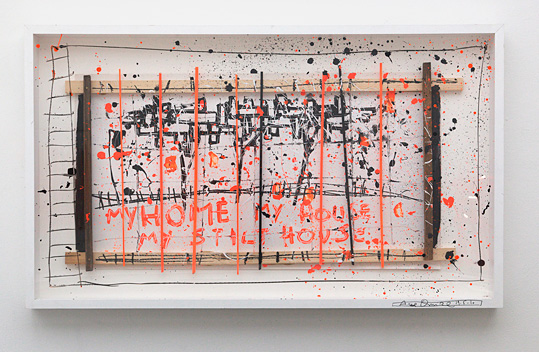 MY HOME MY HOUSE
MY STILT HOUSE